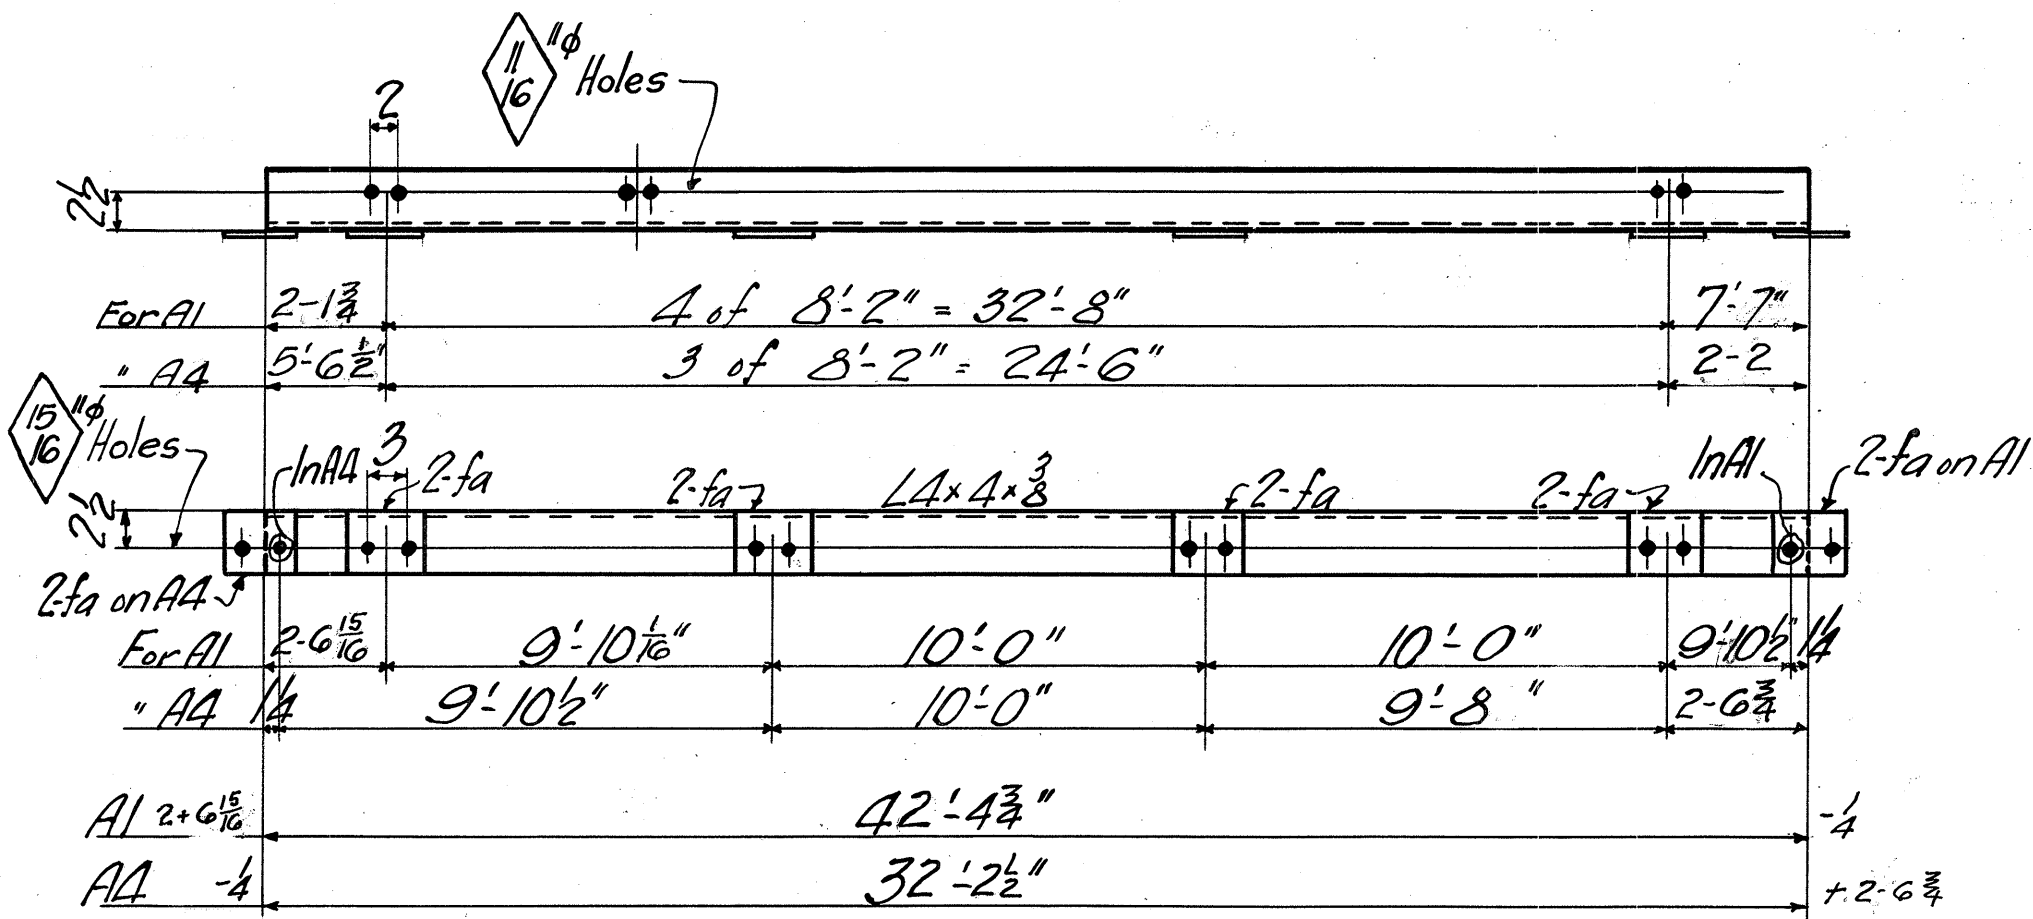 11/16 "φ Holes
2
2½
For A1 2-1¾ 4 of 8'-2" = 32'-8" 7'-7"
" A4 5'-6½" 3 of 8'-2" = 24'-6" 2-2
15/16 "φ Holes
InA4 3 2-fa 2-fa L4×4×⅜ 2-fa 2-fa InA1 2-fa on A1
2½
2-fa on A4
For A1 2-6 15/16 9'-10 1/16" 10'-0" 10'-0" 9'-10½" 1¼
" A4 1¼ 9'-10½" 10'-0" 9'-8" 2-6¾
A1 2+6 15/16 42'-4¾" -¼
A4 -¼ 32'-2½" +2-6¾